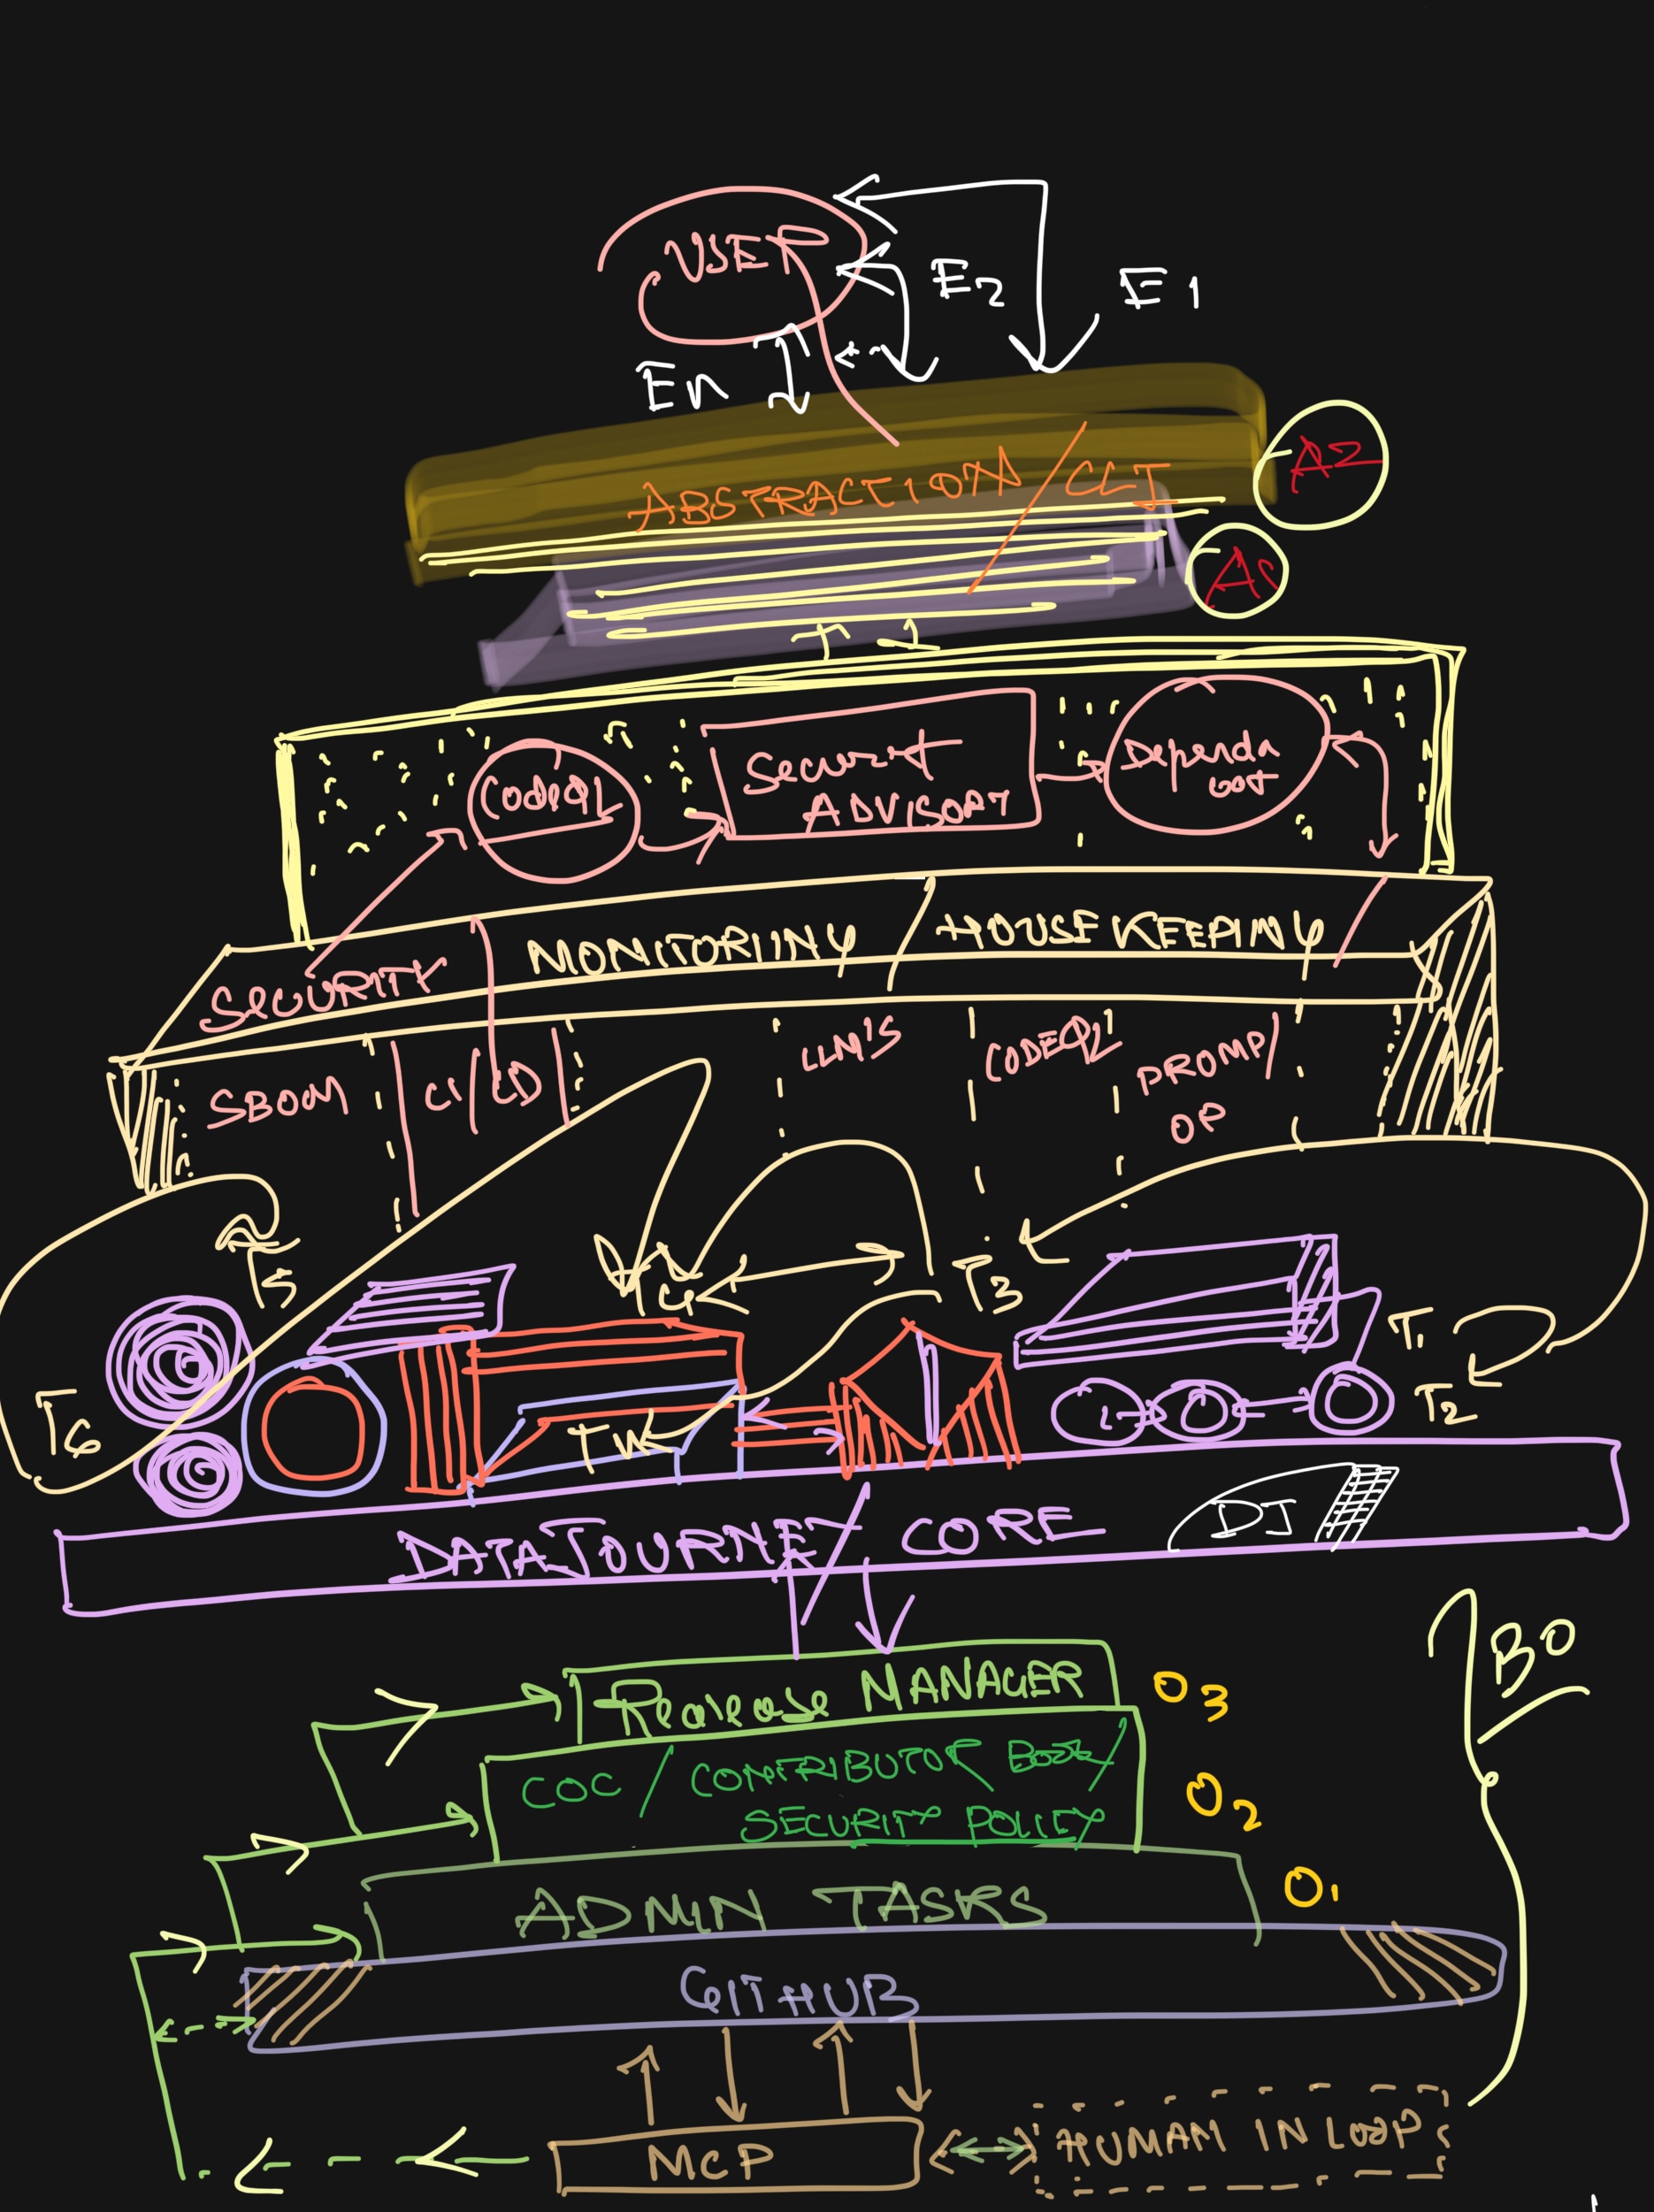 USER
E2
E1
En
A2
ABSTRACTION / CLI
CodeQL
Security
ADVISORY
Dependa
bot
SECURITY
MONITORIINY / HOUSEKEEPINY
SBOM
CI/CD
LLM'S
CODEQL
PROMP/
OP
T5
T3
T1
T2
T6
DATAJOURNEY / CORE
DI
Release MANAGER
O3
BO
COC / CONTRIBUTOR
SECURITY POLICY
O2
ADMIN TASKS
O1
GITHUB
MCP
HUMAN IN LOOP